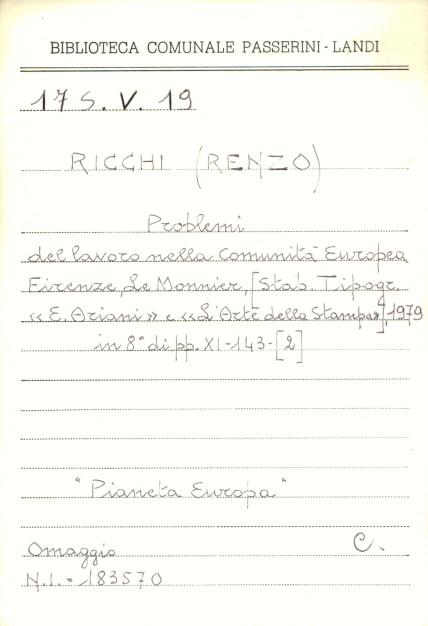 BIBLIOTECA COMUNALE PASSERINI-LANDI
17 S. V. 19
RICCHI (RENZO)
Problemi
del lavoro nella Comunità Europea
Firenze, Le Monnier, [Stab. Tipogr.
«E. Ariani» e «L'Arte della Stampa»], 1979
in 8° di pp. XI-143-[2]
"Pianeta Europa"
Omaggio C.
N.I. = 183570